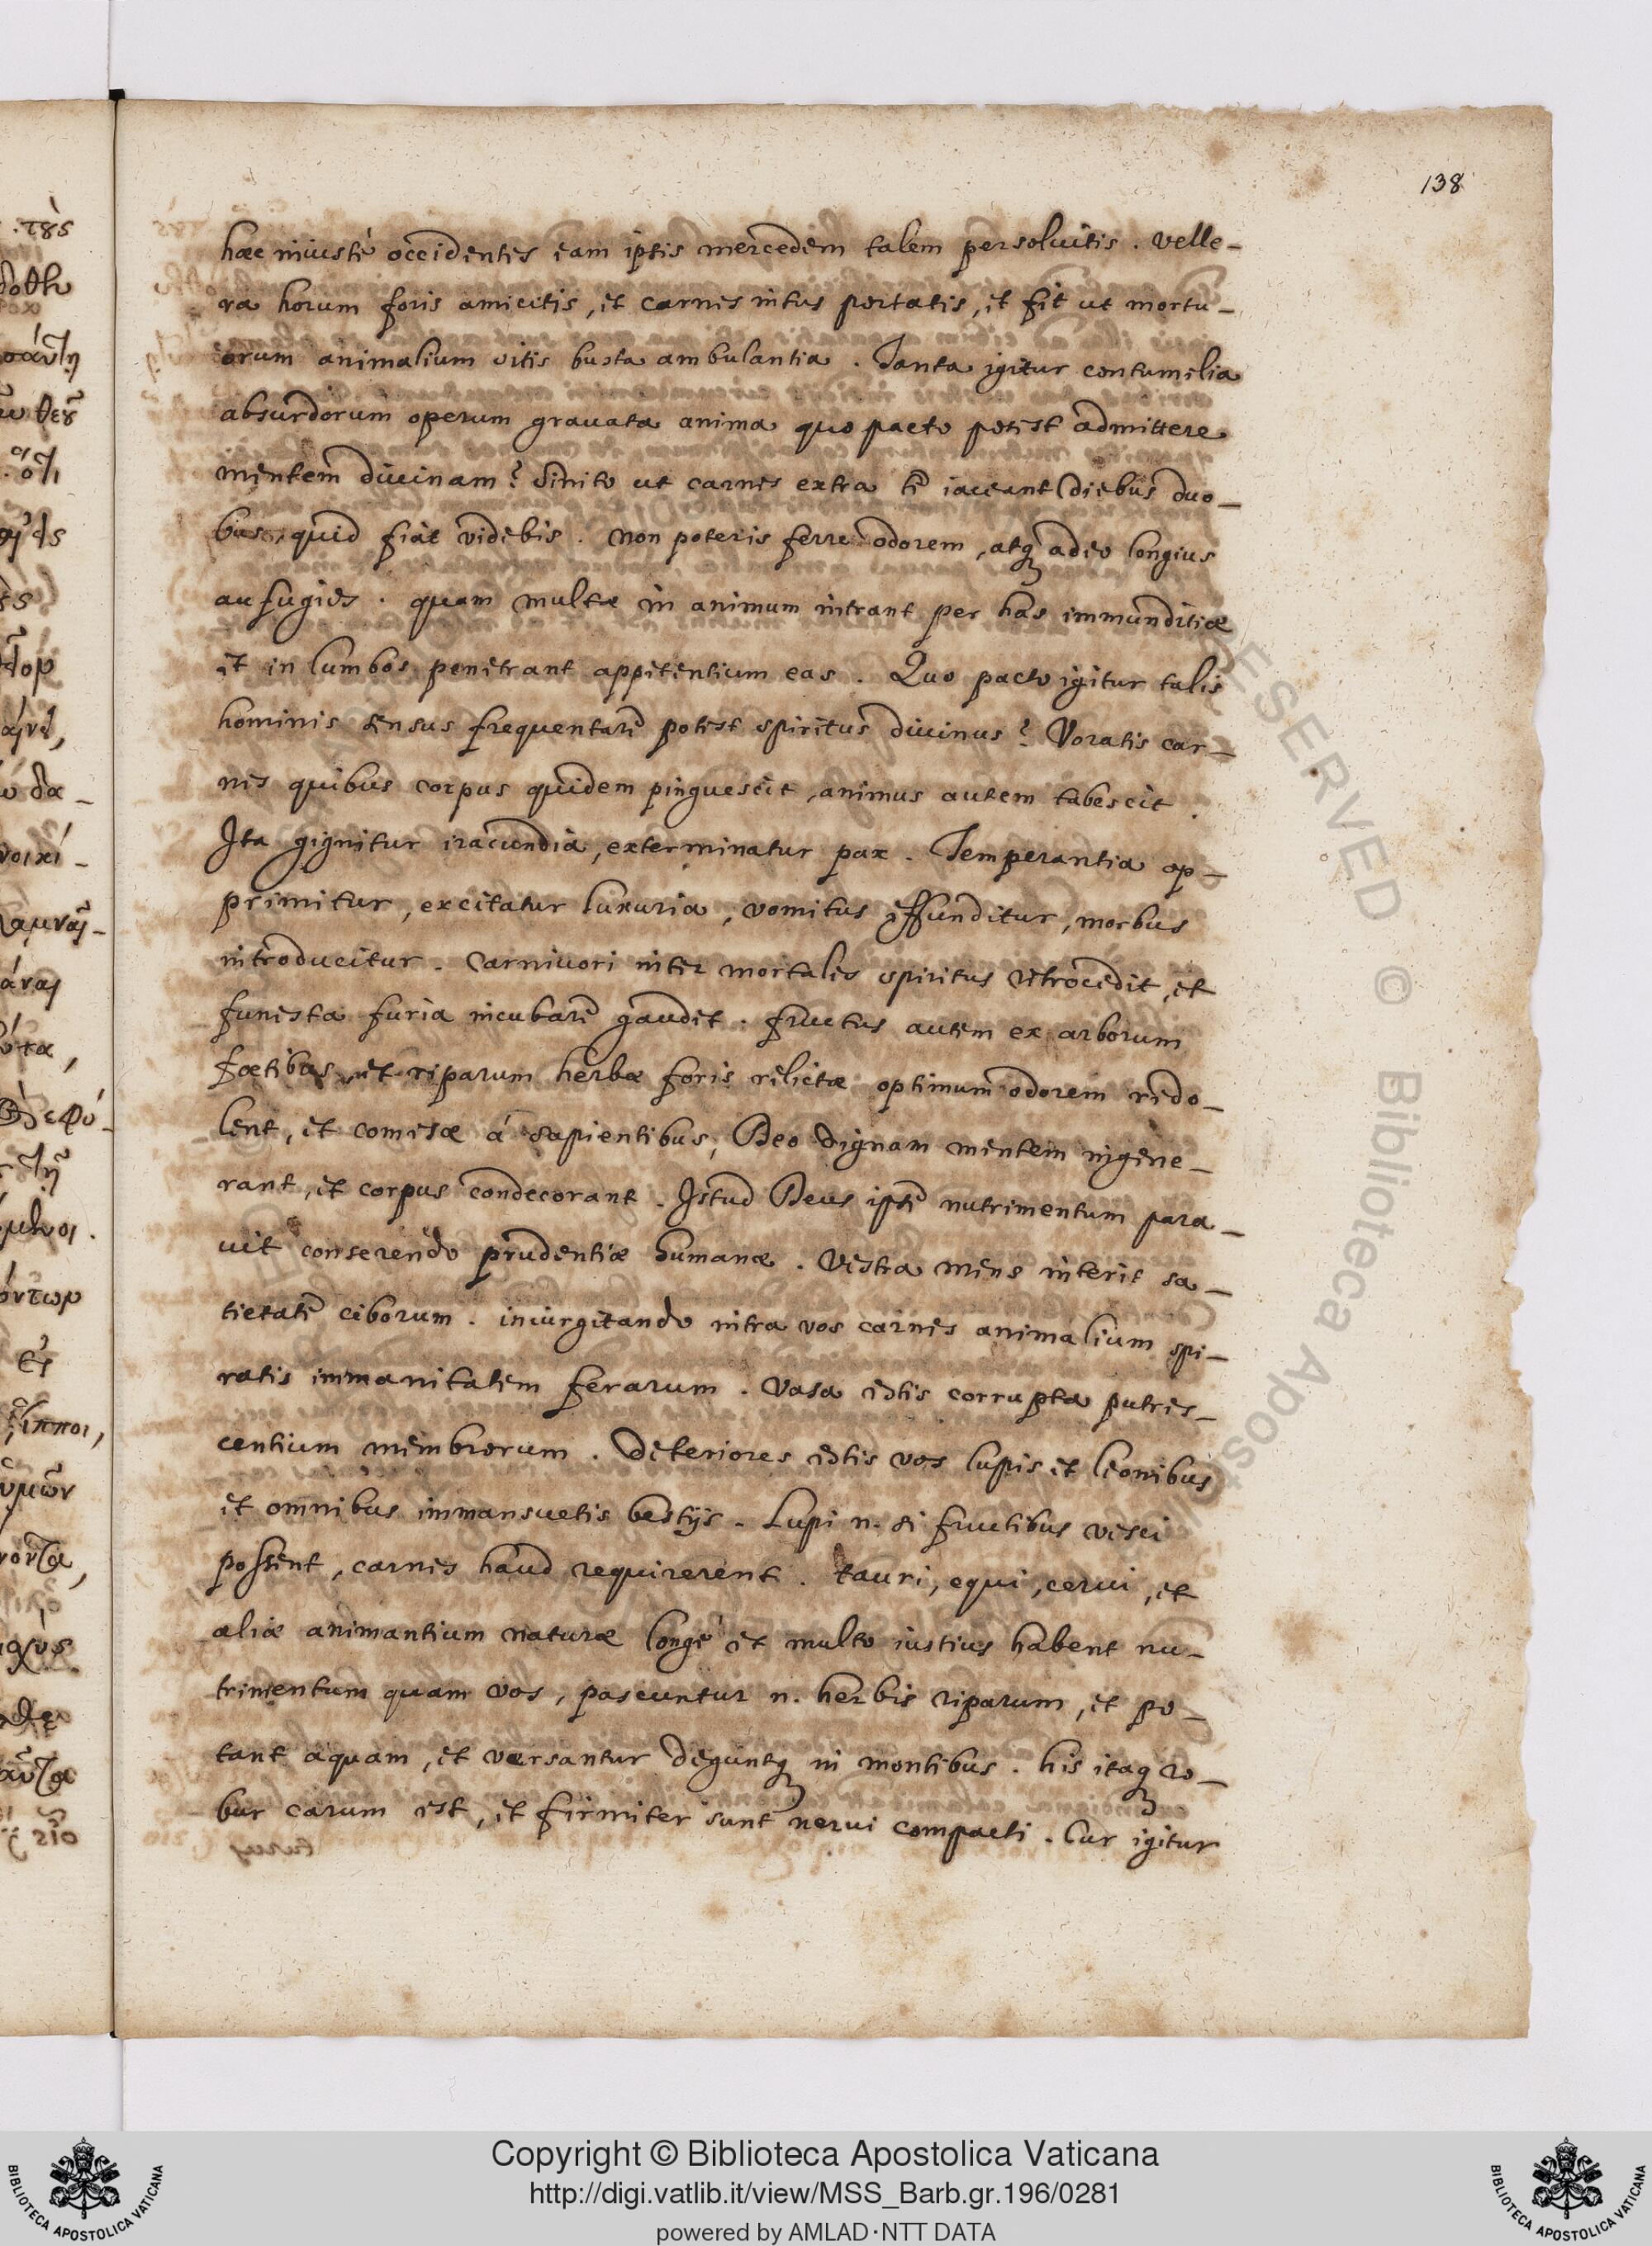 138
haec iniustè occidentes eam ipsis mercedem talem persoluitis. velle-
ra horum foris amicitis, et carnes intus portatis, et fit ut mortu-
orum animalium sitis busta ambulantia. Tanta igitur contumelia
absurdorum operum grauata anima quo pacto potest admittere
mentem diuinam? Sinito ut carnes extra te iaceant diebus duo-
bus, quid fiat videbis. non poteris ferre odorem, atq adeo longius
aufugies. quam multae in animum intrant per has immunditiae
et in lumbos penetrant appetentium eas. Quo pacto igitur talis
hominis sensus frequentare potest spiritus diuinus? Voratis car-
nes quibus corpus quidem pinguescit, animus autem tabescit.
Ita gignitur iracundia, exterminatur pax. Temperantia op-
primitur, excitatur luxuria, vomitus effunditur, morbus
introducitur. carniuori inter mortales spiritus retrocedit, et
funesta furia incubare gaudet. fructus autem ex arborum
foetibus, et riparum herbae foris relictae optimum odorem redo-
lent, et comesae á sapientibus, Deo dignam mentem ingene-
rant, et corpus condecorant. Istud Deus ipse nutrimentum para-
uit conserendo prudentiae humanae. Vestra mens interit sa-
tietate ciborum. inurgitando intra vos carnes animalium spi-
ratis immanitatem ferarum. Vasa estis corrupta putres-
centium membrorum. Deteriores estis vos lupis et leonibus
et omnibus immansuetis bestijs. Lupi n. si fructibus vesci
possent, carnes haud requirerent. tauri, equi, cerui, et
aliae animantium naturae longè et multo iustius habent nu-
trimentum quam vos, pascuntur n. herbis riparum, et po-
tant aquam, et versantur deguntq in montibus. his itaq ro-
bur carum est, et firmiter sunt nerui compacti. Cur igitur
Copyright © Biblioteca Apostolica Vaticana
http://digi.vatlib.it/view/MSS_Barb.gr.196/0281
powered by AMLAD·NTT DATA